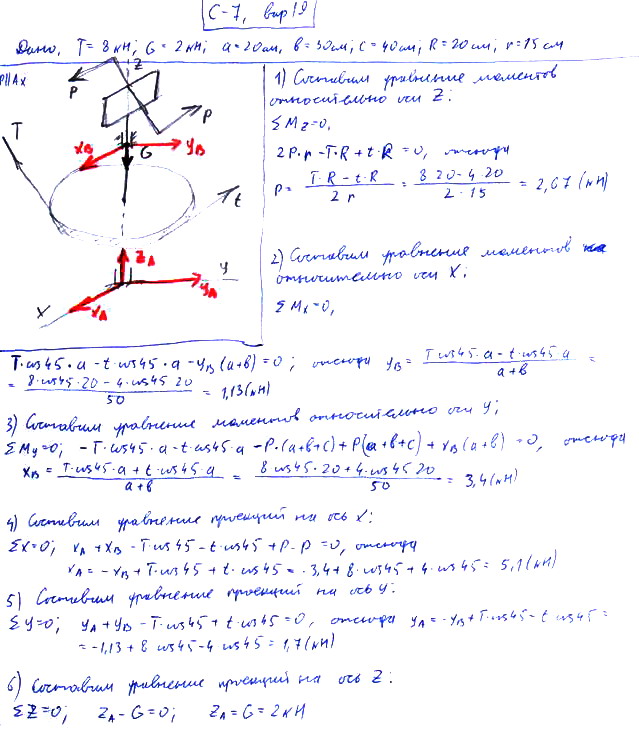 С-7, вар 19
Дано: T = 8 кН; G = 2 кН; a = 20 см, в = 30 см; c = 40 см; R = 20 см; r = 15 см
Z
P
P
T
XB
YB
G
t
ZA
Y
YA
X
XA
1) Составим уравнение моментов
относительно оси Z:
ΣMz=0,
2P·r - T·R + t·R = 0, отсюда
P = (T·R - t·R)/(2r) = (8·20 - 4·20)/(2·15) = 2,67 (кН)
2) Составим уравнение моментов
относительно оси X:
ΣMx=0,
T·cos45·a - t·cos45·a - YB(a+в) = 0; отсюда YB = (T cos45·a - t·cos45·a)/(a+в) =
= (8·cos45·20 - 4·cos45·20)/50 = 1,13 (кН)
3) Составим уравнение моментов относительно оси y;
ΣMy=0; -T·cos45·a - t·cos45·a - P·(a+в+c) + P(a+в+c) + XB(a+в) = 0, отсюда
XB = (T·cos45·a + t·cos45·a)/(a+в) = (8 cos45·20 + 4·cos45·20)/50 = 3,4 (кН)
4) Составим уравнение проекций на ось X:
ΣX=0; XA + XB - T·cos45 - t·cos45 + P - P = 0, отсюда
XA = -XB + T·cos45 + t·cos45 = -3,4 + 8·cos45 + 4·cos45 = 5,1 (кН)
5) Составим уравнение проекций на ось y:
Σy=0; YA + YB - T·cos45 + t·cos45 = 0, отсюда YA = -YB + T·cos45 - t cos45 =
= -1,13 + 8 cos45 - 4 cos45 = 1,7 (кН)
6) Составим уравнение проекций на ось Z:
ΣZ=0; ZA - G = 0; ZA = G = 2 кН